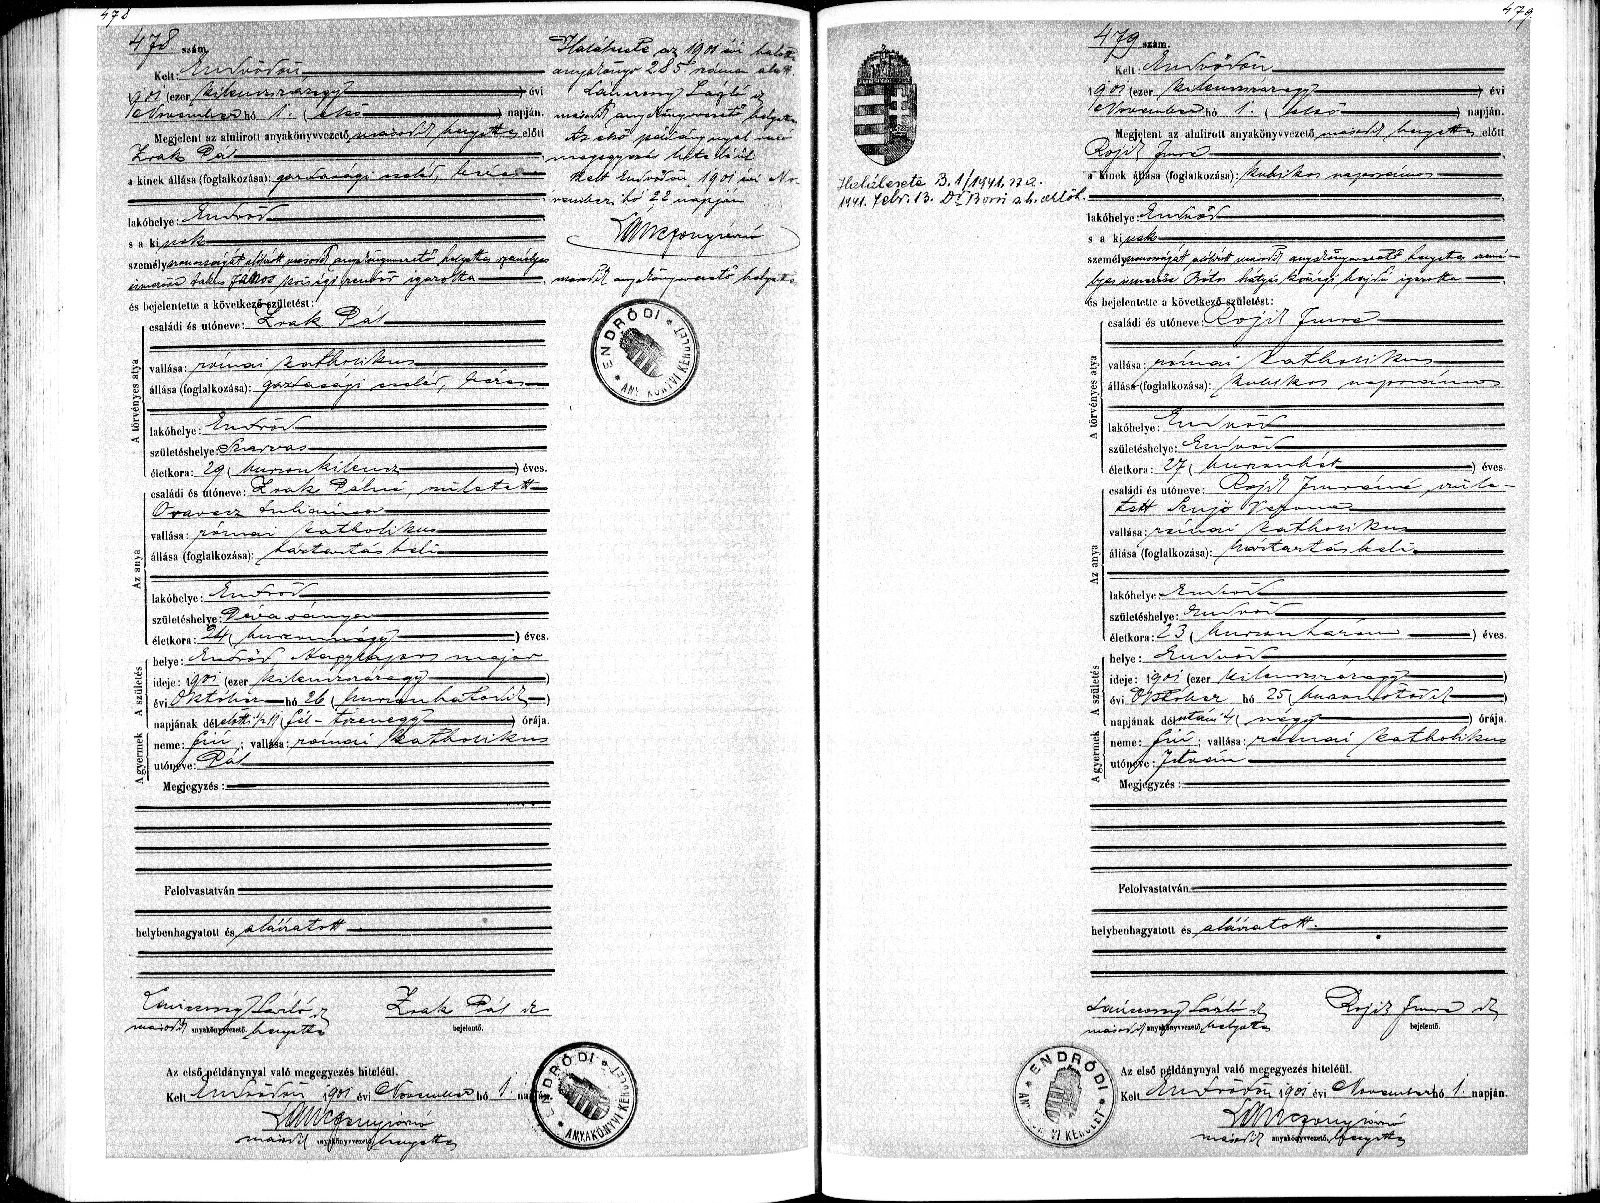 478
478 szám.
Kelt: Endrődön
1901 (ezer kilenczszázegy) évi
November hó 1. (első) napján.
Megjelent az alulirott anyakönyvvezető másod helyettes előtt
Zrak Pál
a kinek állása (foglalkozása): gazdasági cseléd, béres
lakóhelye: Endrőd
s a kinek
személyazonosságát előbbi másod anyakönyvvezető helyettes személyes
ismerőse János községi rendőr igazolta
és bejelentette a következő születést:
A törvényes atya
családi és utóneve: Zrak Pál
vallása: római katholikus
állása (foglalkozása): gazdasági cseléd, béres
lakóhelye: Endrőd
születéshelye: Szarvas
életkora: 29 (huszonkilencz) éves.
Az anya
családi és utóneve: Zrak Pálné, született
Oravecz Julianna
vallása: római katholikus
állása (foglalkozása): háztartásbeli
lakóhelye: Endrőd
születéshelye: Dévaványa
életkora: 24 (huszonnégy) éves.
A születés
helye: Endrőd, Nagylapos major
ideje: 1901 (ezer kilenczszázegy)
évi Október hó 26 (huszonhatodik)
napjának délelőtti ½11 (fél-tizenegy) órája.
A gyermek
neme: fiú; vallása: római katholikus
utóneve: Pál
Megjegyzés:
Felolvastatván
helybenhagyatott és aláiratott
Lánczony László
másod anyakönyvvezető helyettes
Zrak Pál
bejelentő.
Az első példánynyal való megegyezés hiteléül.
Kelt Endrődön 1901 évi November hó 1. napján
másod anyakönyvvezető helyettes
ENDRŐDI
ANYAKÖNYVI KERÜLET
Halálesete az 1901 évi halotti
anyakönyv 285 száma alatt
László
másod anyakönyvvezető helyettes
Az első példánynyal való
megegyezés hiteléül
Kelt Endrődön 1901 évi No-
vember hó 22 napján
másod anyakönyvvezető helyettes
ENDRŐDI
ANYAKÖNYVI KERÜLET
479
479 szám.
Kelt: Endrődön
1901 (ezer kilenczszázegy) évi
November hó 1. (első) napján.
Megjelent az alulirott anyakönyvvezető másod helyettes előtt
Rojik Imre
a kinek állása (foglalkozása): kubikos napszámos
lakóhelye: Endrőd
s a kinek
személyazonosságát előbbi másod anyakönyvvezető helyettes szemé-
lyes ismerőse Mátyás községi hajdú igazolta
és bejelentette a következő születést:
A törvényes atya
családi és utóneve: Rojik Imre
vallása: római katholikus
állása (foglalkozása): kubikos napszámos
lakóhelye: Endrőd
születéshelye: Endrőd
életkora: 27 (huszonhét) éves.
Az anya
családi és utóneve: Rojik Imréné szüle-
tett
vallása: római katholikus
állása (foglalkozása): háztartásbeli
lakóhelye: Endrőd
születéshelye: Endrőd
életkora: 23 (huszonhárom) éves.
A születés
helye: Endrőd
ideje: 1901 (ezer kilenczszázegy)
évi Október hó 25 (huszonötödik)
napjának délutáni 4 (négy) órája.
A gyermek
neme: fiú; vallása: római katholikus
utóneve: István
Megjegyzés:
Felolvastatván
helybenhagyatott és aláiratott.
Lánczony László
másod anyakönyvvezető helyettes
Rojik Imre
bejelentő.
Az első példánynyal való megegyezés hiteléül.
Kelt Endrődön 1901 évi November hó 1. napján.
másod anyakönyvvezető helyettes
ENDRŐDI
ANYAKÖNYVI KERÜLET
Halálesete B. 1/1941.
1941. febr. 13. Dr.